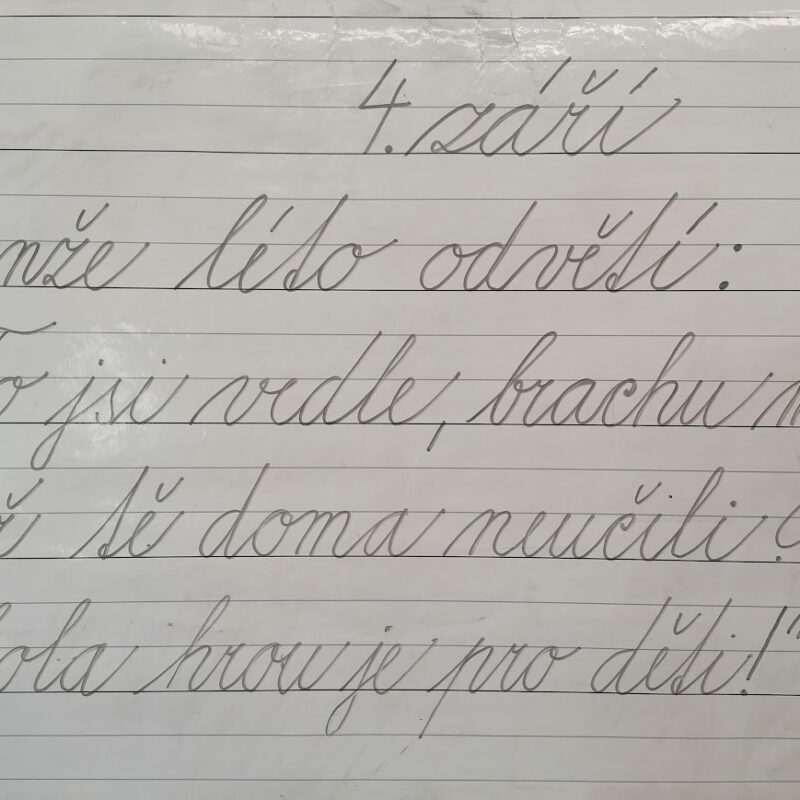 4. září
nže léto odvětí:
o jsi vedle, brachu
tě doma neučili?
ola hrou je pro děti!"